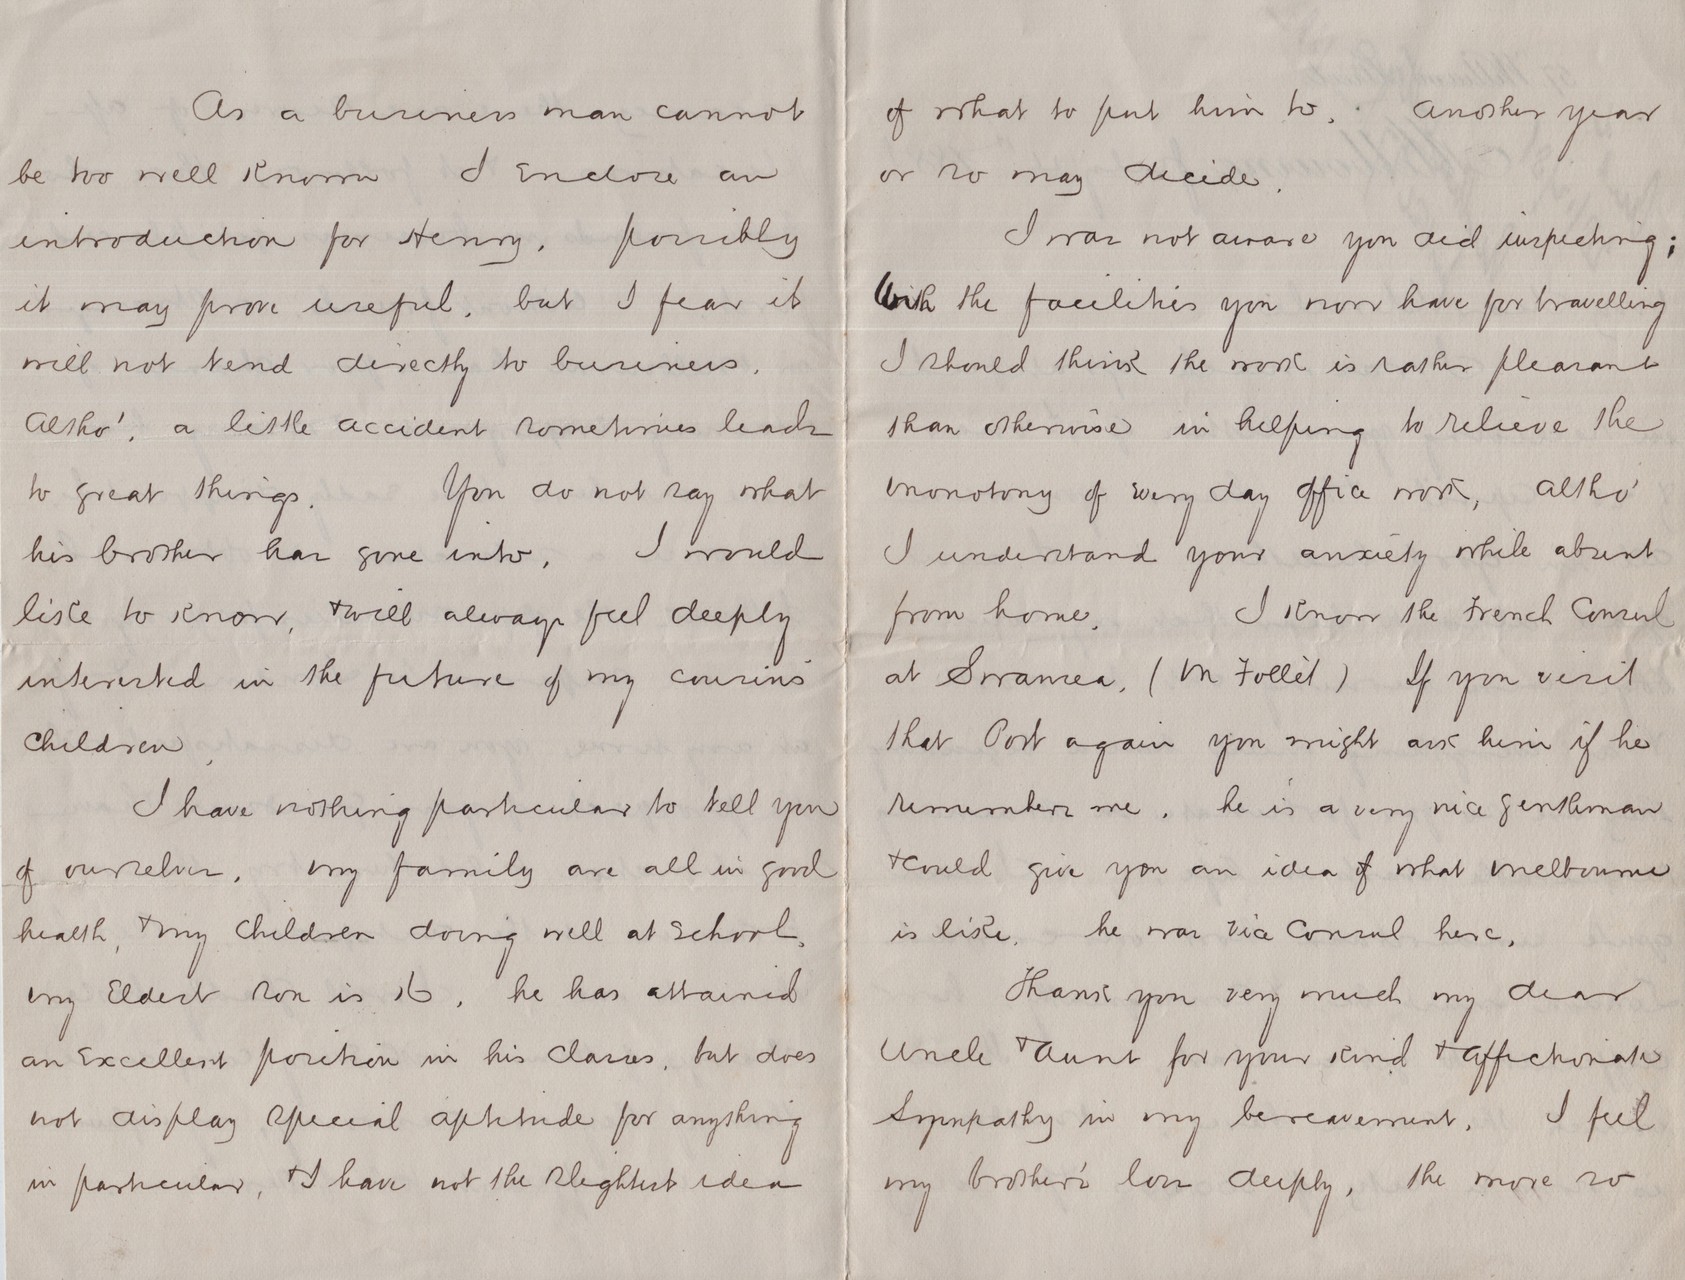 As a business man cannot
be too well known I Enclose an
introduction for Henry. possibly
it may prove useful. but I fear it
will not tend directly to business.
altho', a little accident sometimes leads
to great things. You do not say what
his brother has gone into. I would
like to know, & will always feel deeply
interested in the future of my cousins
children.
I have nothing particular to tell you
of ourselves. my family are all in good
health, & my children doing well at School.
my Eldest son is 16. he has attained
an Excellent position in his classes, but does
not display special aptitude for anything
in particular, & I have not the slightest idea
of what to put him to. another year
or so may decide.
I was not aware you did inspecting;
With the facilities you now have for travelling
I should think the work is rather pleasant
than otherwise in helping to relieve the
monotony of every day office work, altho'
I understand your anxiety while absent
from home. I know the French Consul
at Swansea. (M Follêt) If you visit
that Port again you might ask him if he
remembers me. he is a very nice gentleman
& could give you an idea of what Melbourne
is like. he was Vice Consul here.
Thank you very much my dear
Uncle & Aunt for your kind & affectionate
Sympathy in my bereavement. I feel
my brother's loss deeply, the more so